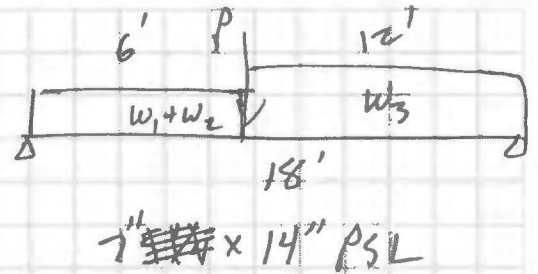 6' P 12'
w₁+w₂ w₃
18'
7" x 14" PSL